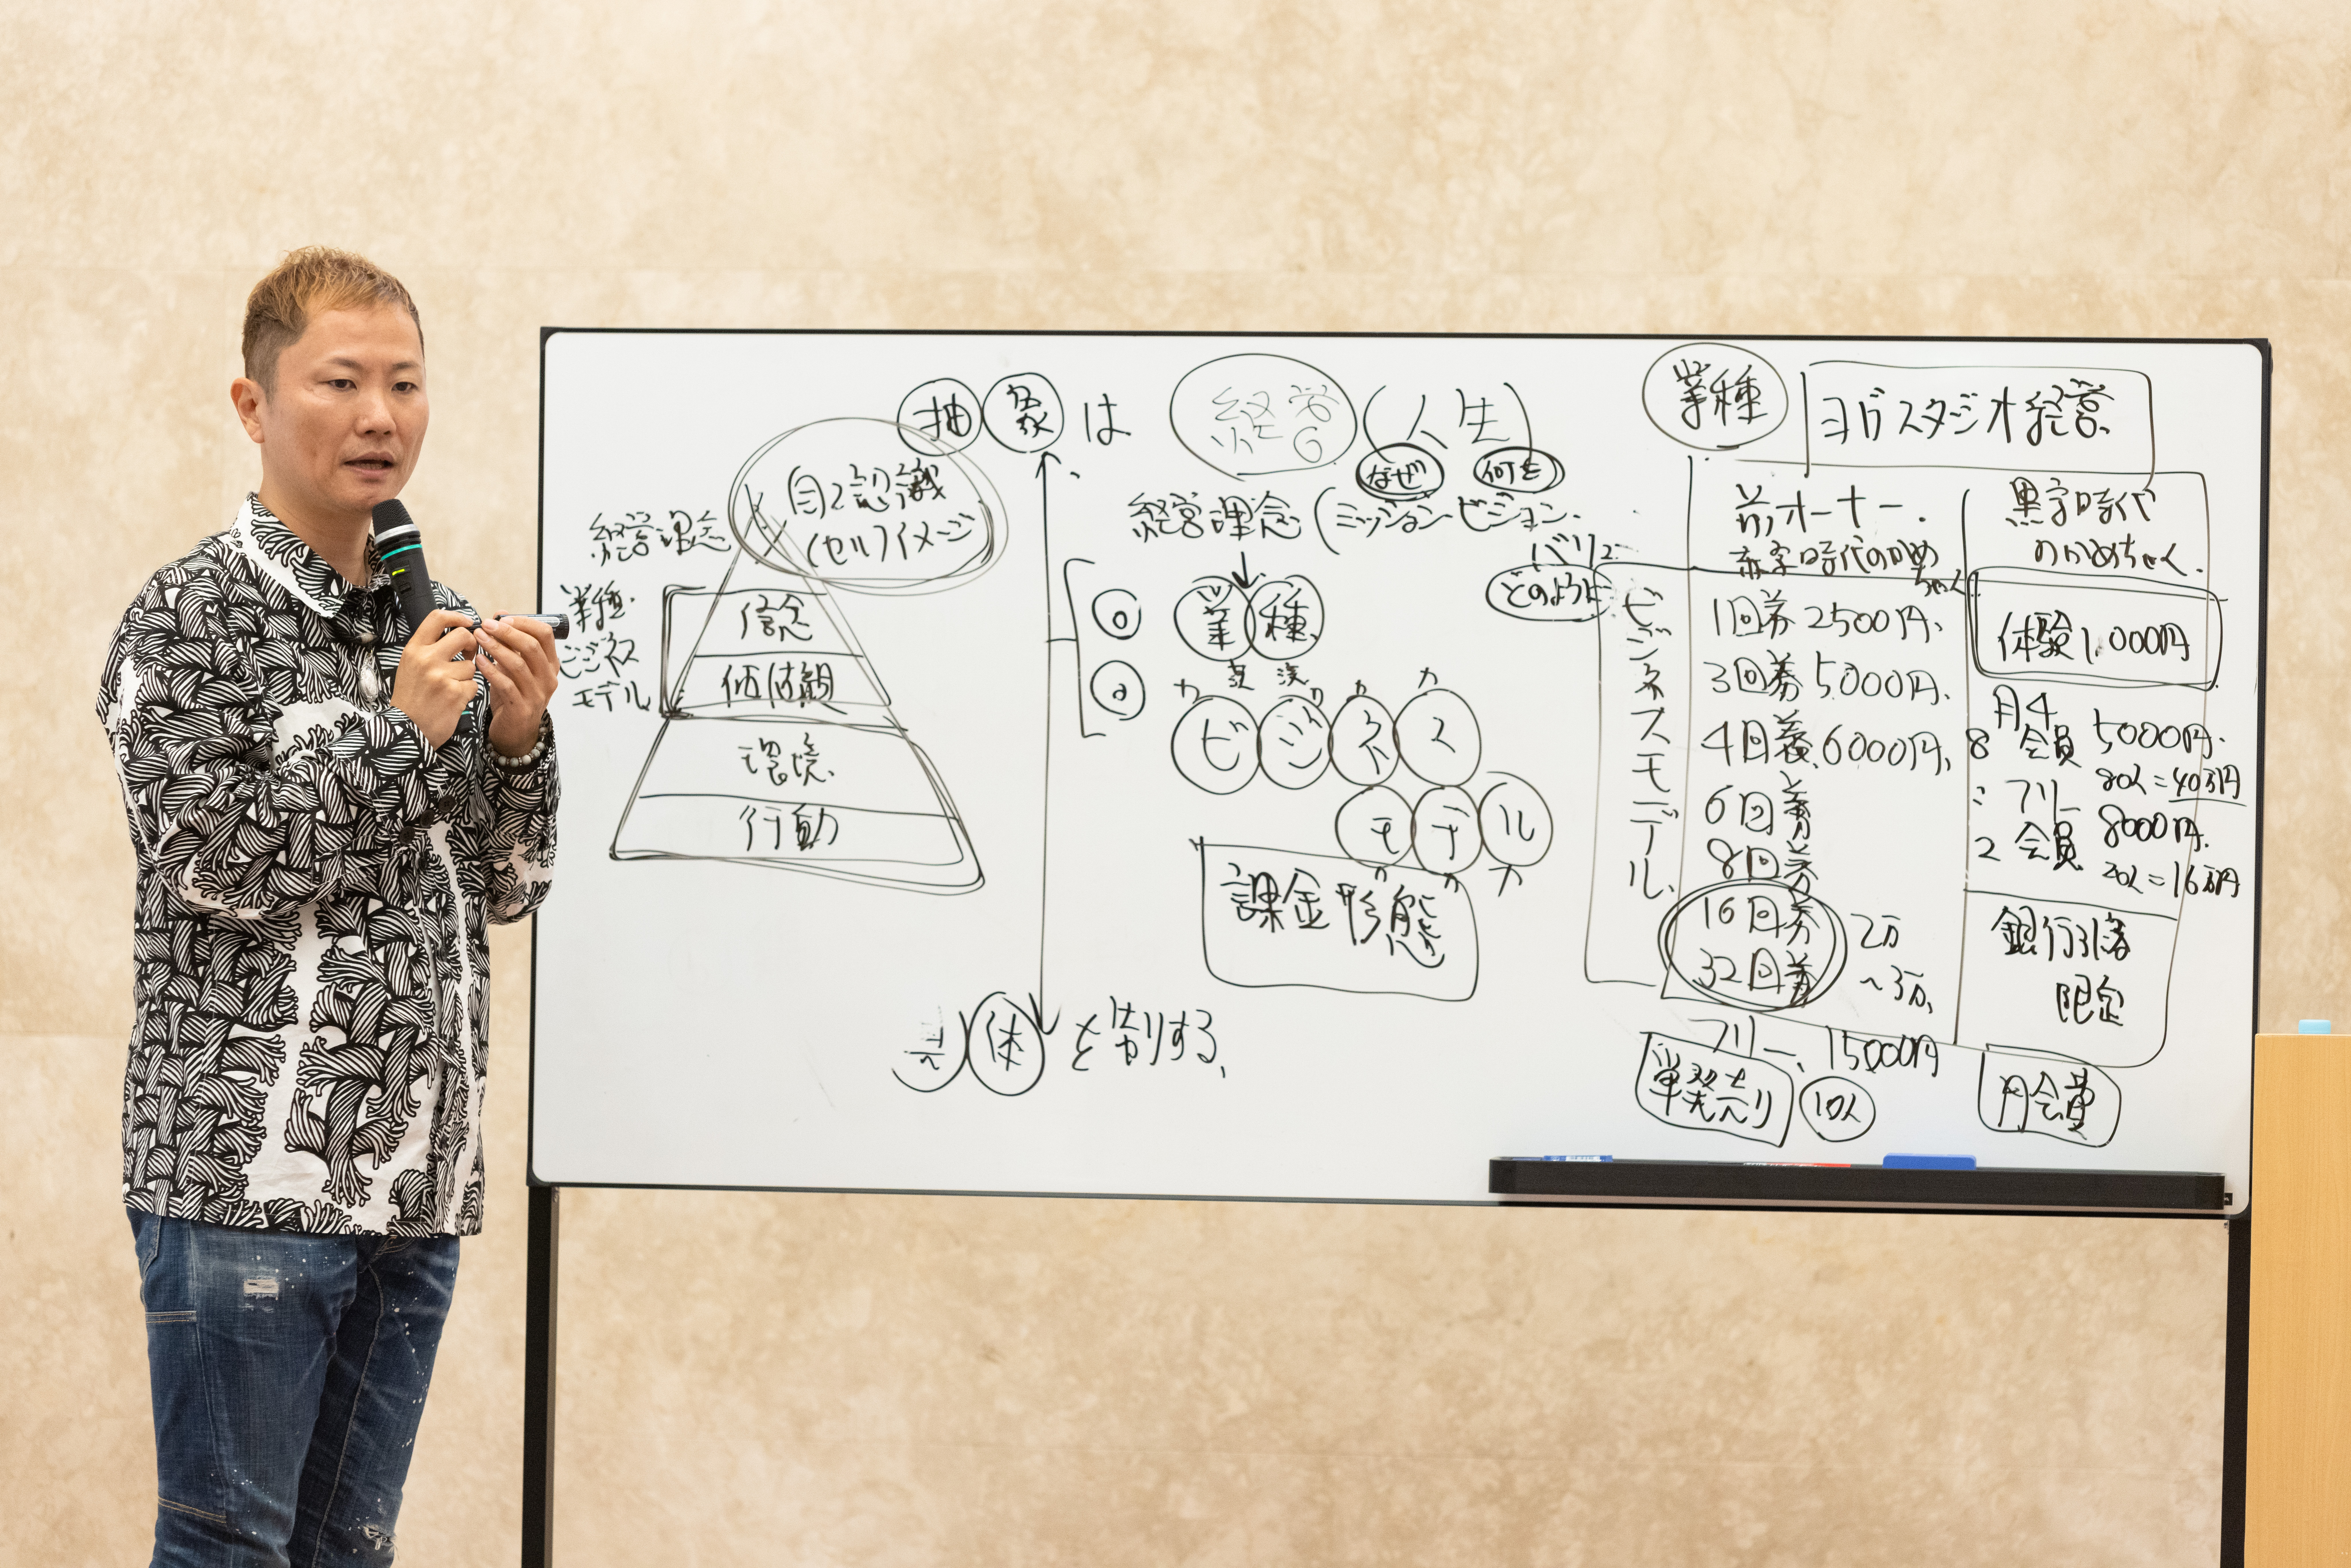 抽象は
経営
(人生)
自己認識
(セルフイメージ
経営理念
業種・
ビジネス
モデル
信念
価値観
環境
行動
なぜ
何を
経営理念(ミッション ビジョン
バリュ
どのように
業種
ビジネス
モデル
課金形態
を割りする
業種
ヨガスタジオ経営
前オーナー
赤字時代のかめ
ちゃん
ビジネスモデル
1回券 2500円
3回券 5000円
4回券 6000円
6回券
8回券
16回券
32回券
2万
~3万
フリー 15000円
単発売り
10人
黒字時代
のかめちゃん
体験1,000円
8
月4
会員
5000円
80人=40万円
:
2
フリー
会員
8000円
20人=16万円
銀行引落
限定
月会費